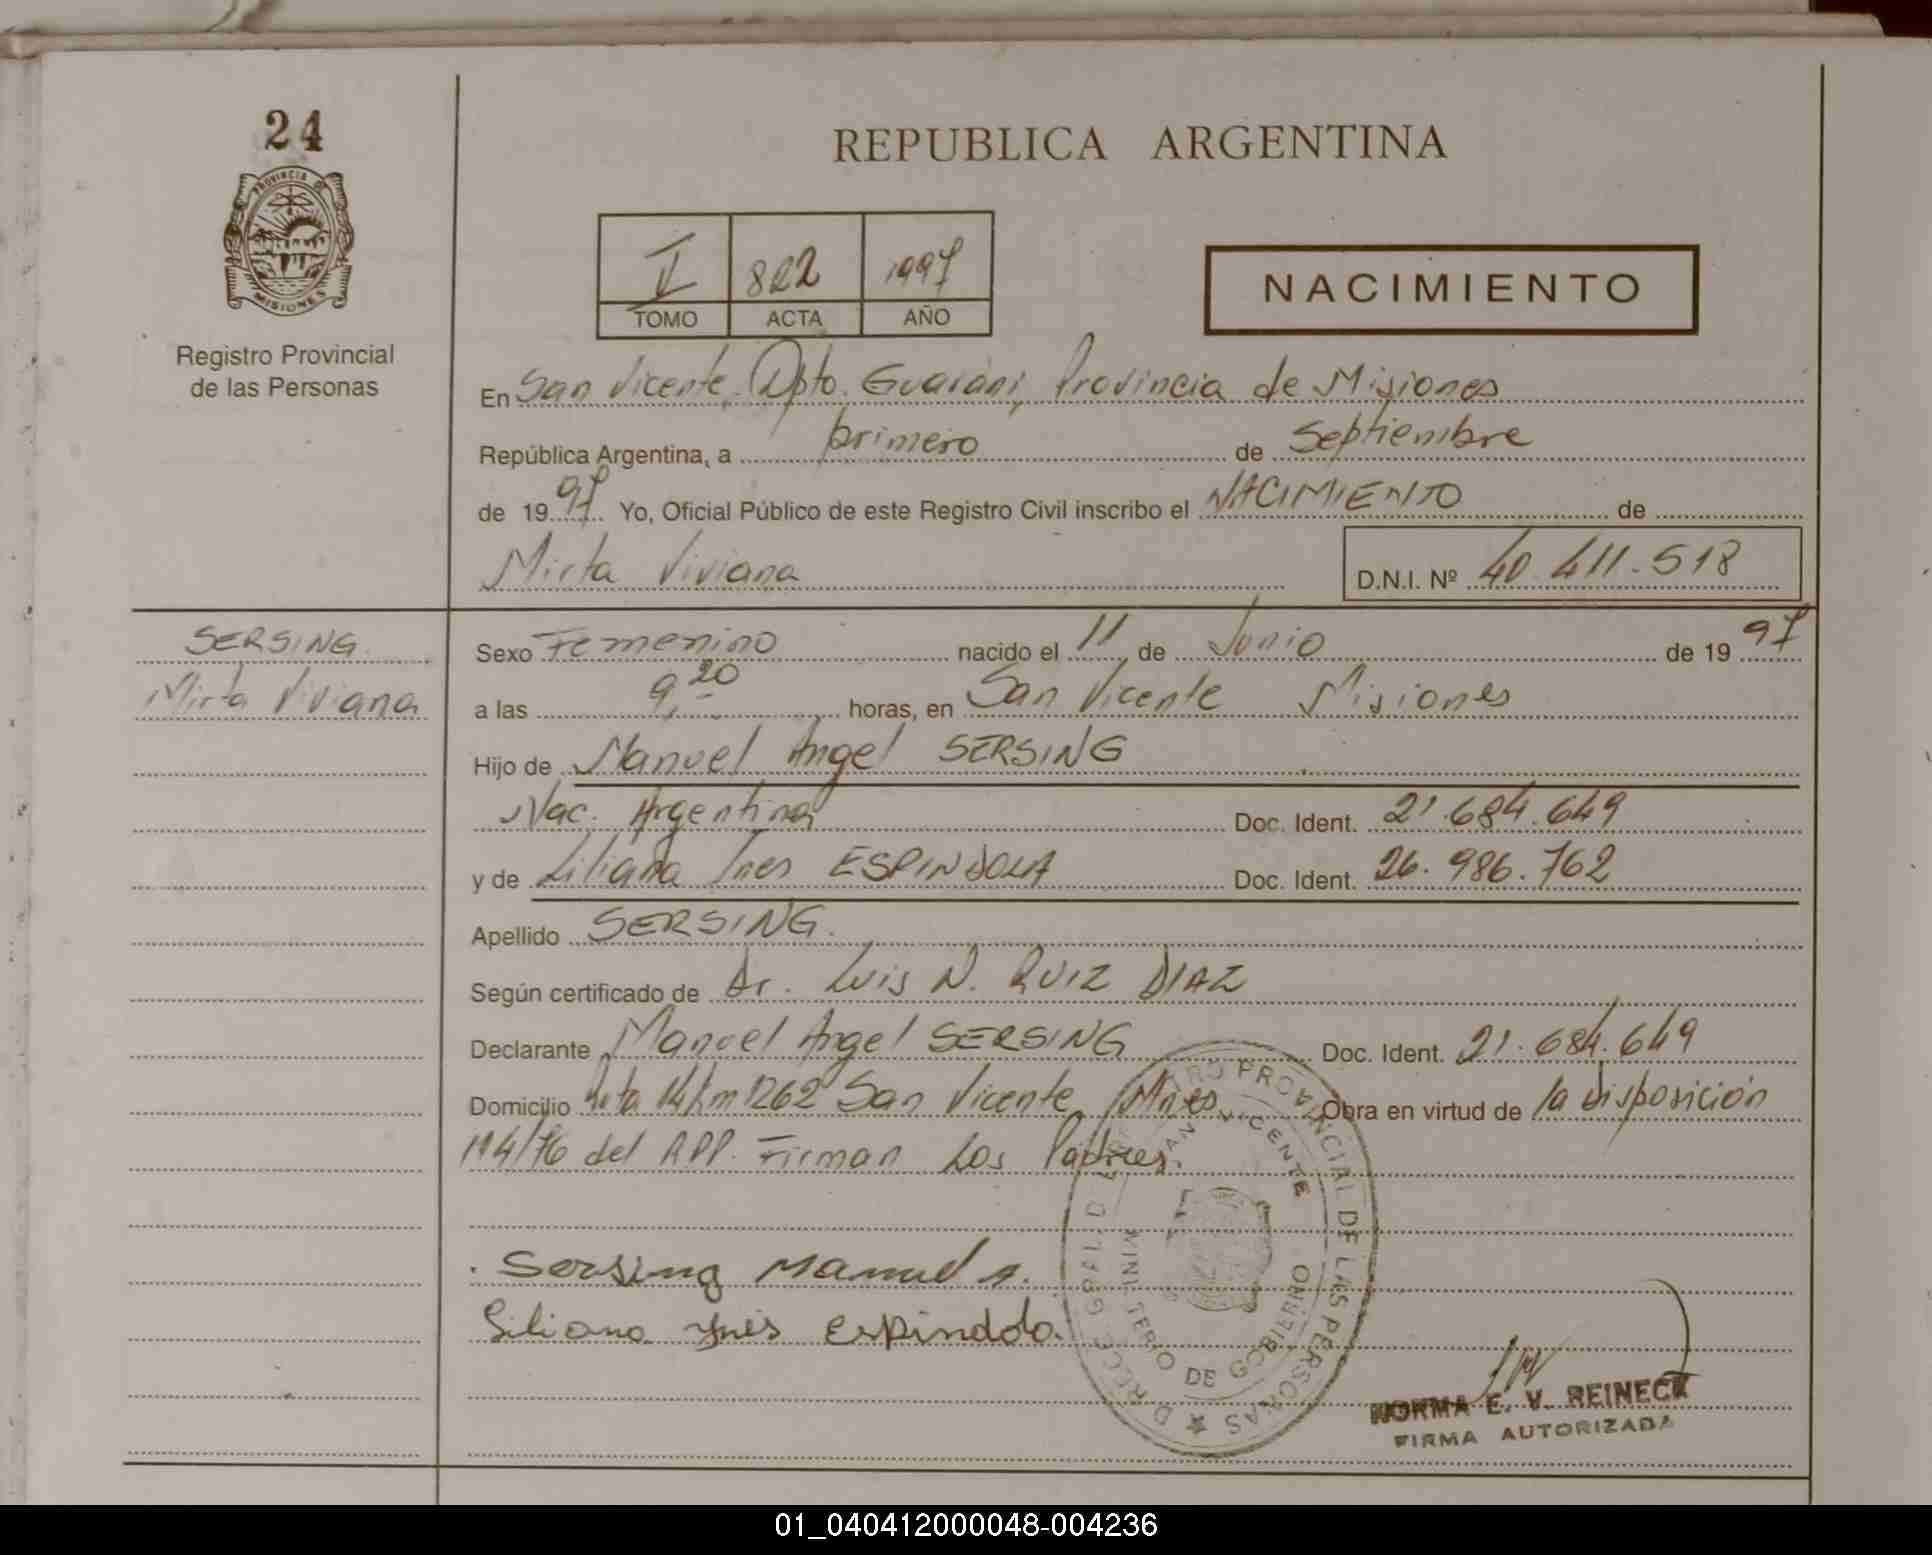 24
PROVINCIA DE
MISIONES
Registro Provincial
de las Personas
REPUBLICA ARGENTINA
822 1997
TOMO ACTA AÑO
NACIMIENTO
En San Vicente, Dpto. Guaraní, Provincia de Misiones
República Argentina, a primero de Septiembre
de 1997 Yo, Oficial Público de este Registro Civil inscribo el NACIMIENTO de
Mirta Viviana D.N.I. Nº 40.411.518
SERSING
Mirta Viviana
Sexo Femenino nacido el 11 de Junio de 1997
a las 9,20 horas, en San Vicente Misiones
Hijo de Manuel Angel SERSING
Nac. Argentina Doc. Ident. 21.684.649
y de Liliana Ines ESPINDOLA Doc. Ident. 26.986.762
Apellido SERSING.
Según certificado de Dr. Luis N. RUIZ DIAZ
Declarante Manuel Angel SERSING Doc. Ident. 21.684.649
Domicilio Ruta 14 Km 1262 San Vicente, Mnes. Obra en virtud de la disposición
114/76 del RPP. Firman Los Padres.
Sersing Manuel A.
Liliana Ynés Espindola.
PROVINCIAL DE LAS PERSONAS
SAN VICENTE
MINISTERIO DE GOBIERNO
NORMA E. V. REINECK
FIRMA AUTORIZADA
01_040412000048-004236